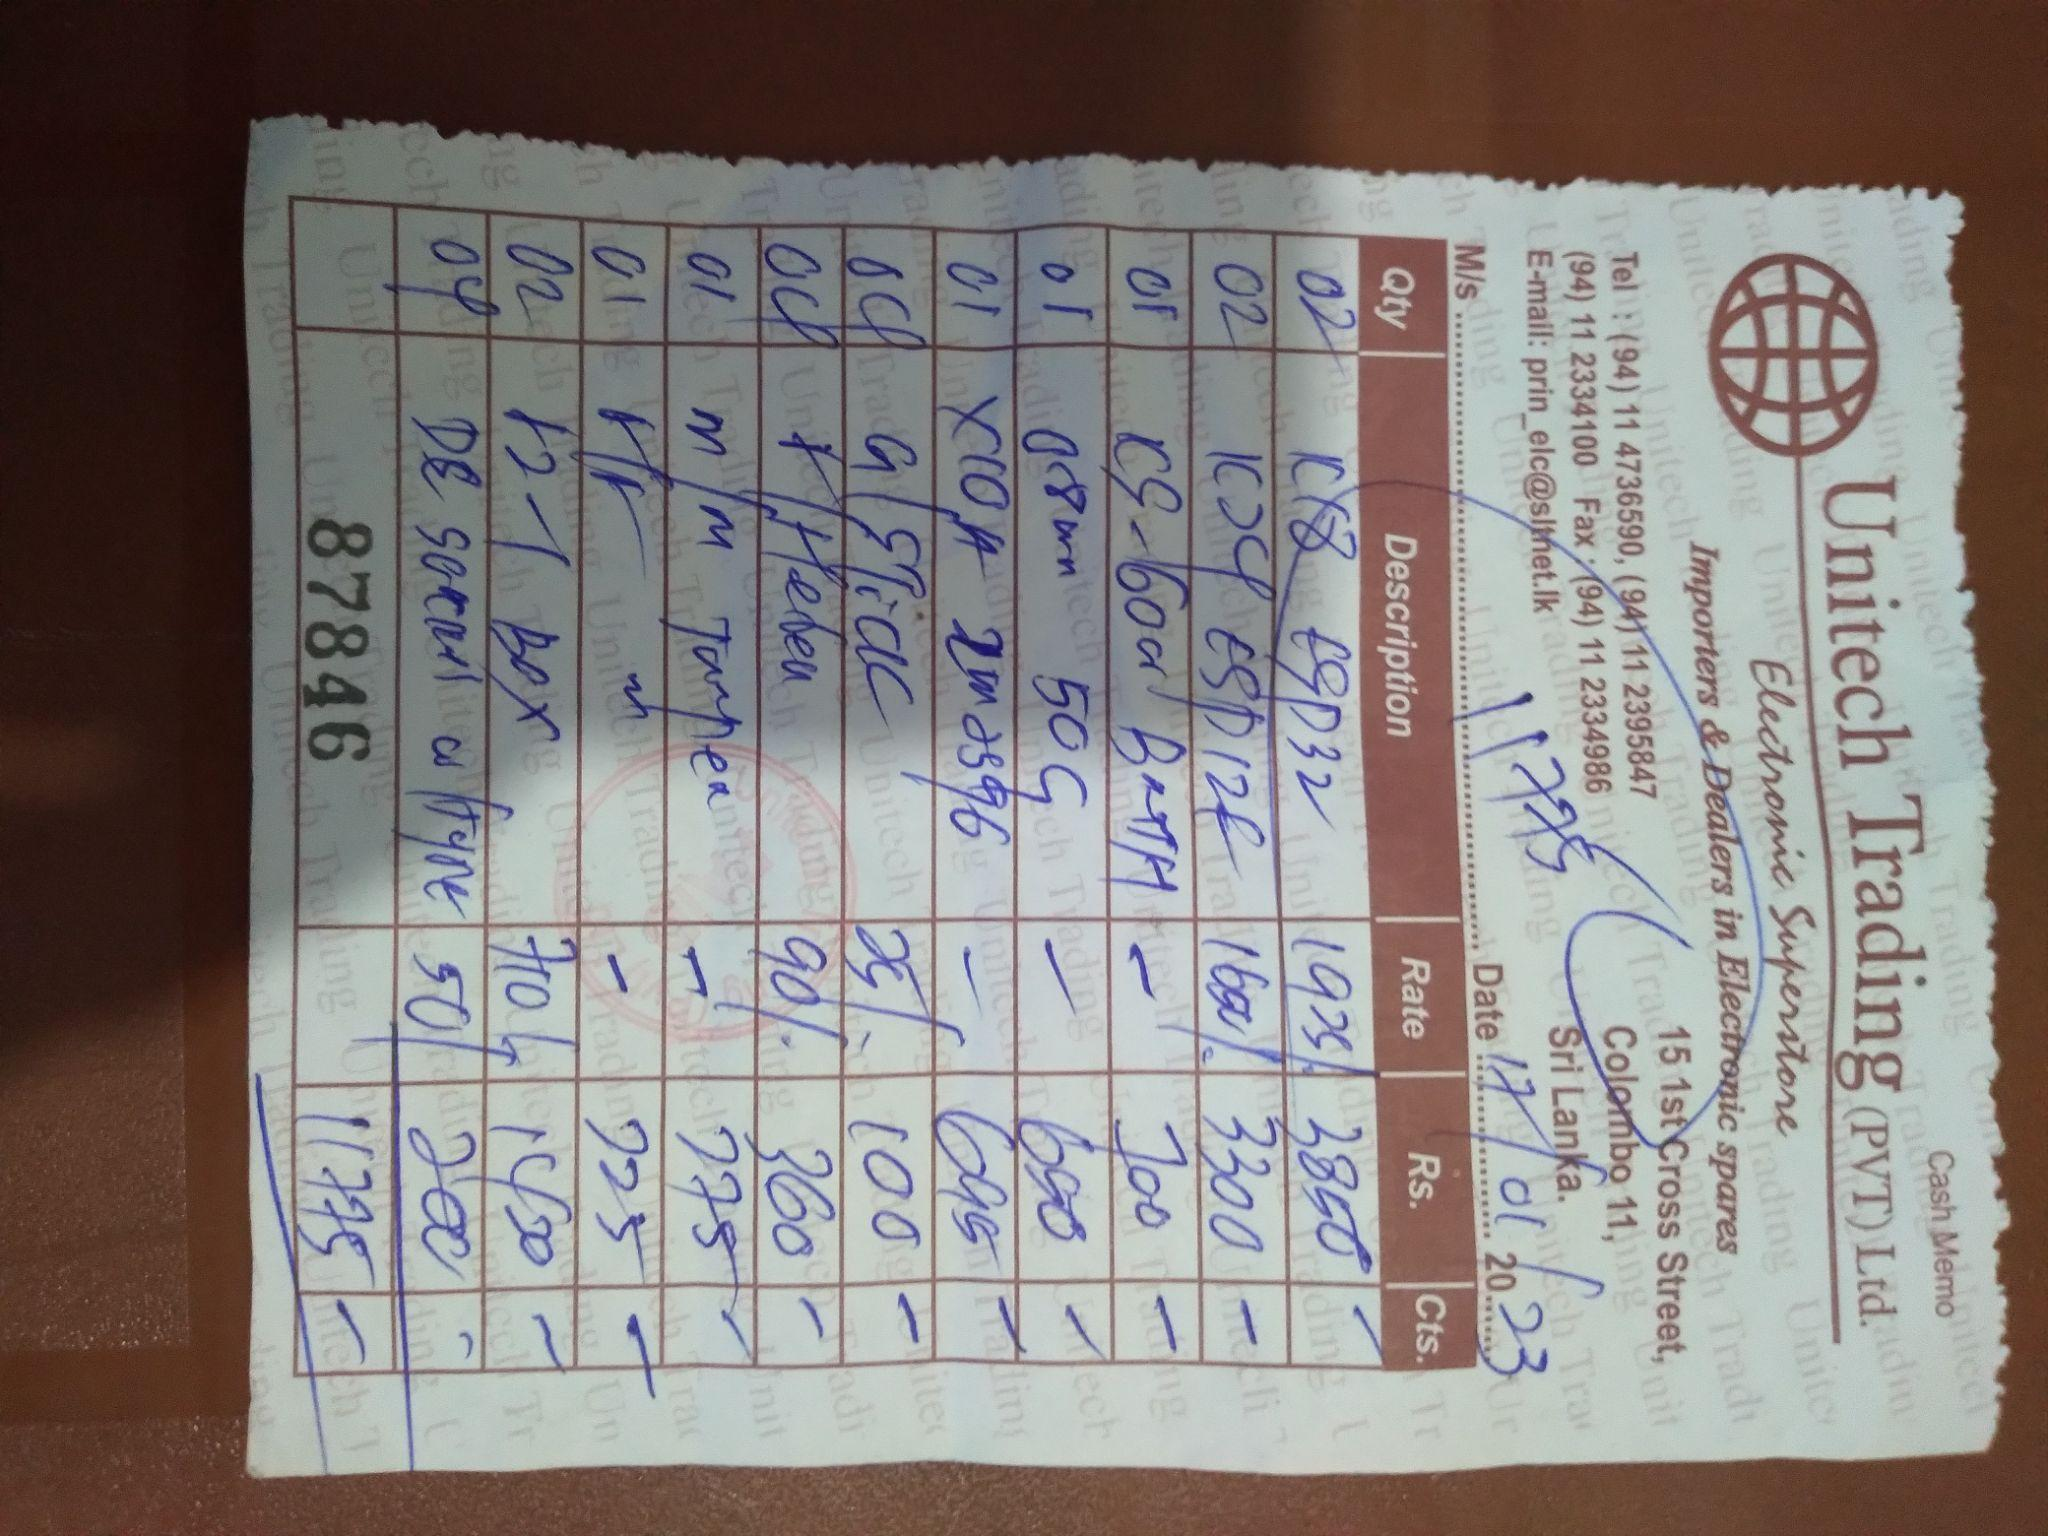 Cash Memo
Unitech Trading (PVT) Ltd.
Electronic Superstore
Importers & Dealers in Electronic spares
Tel : (94) 11 4736590, (94) 11 2395847
(94) 11 2334100 Fax : (94) 11 2334986
E-mail: prin_elc@sltnet.lk
15 1st Cross Street,
Colombo 11,
Sri Lanka.
1775/
M/s Date 17/01/2023
Qty Description Rate Rs. Cts.
02 1925/ 3850 -
02 1650/. 3300 -
01 - 700 -
01 08mm 50G - 650 -
01 - 695 -
04 G/Stick 25/. 100 -
04 90/. 360 -
01 m/m - 275 -
01 - 225 -
02 12-1 Box 710/ 1420 -
04 50/ 200 -
87846 11775 -